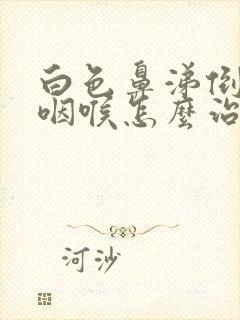 白色鼻涕倒
咽喉怎麼治
河沙